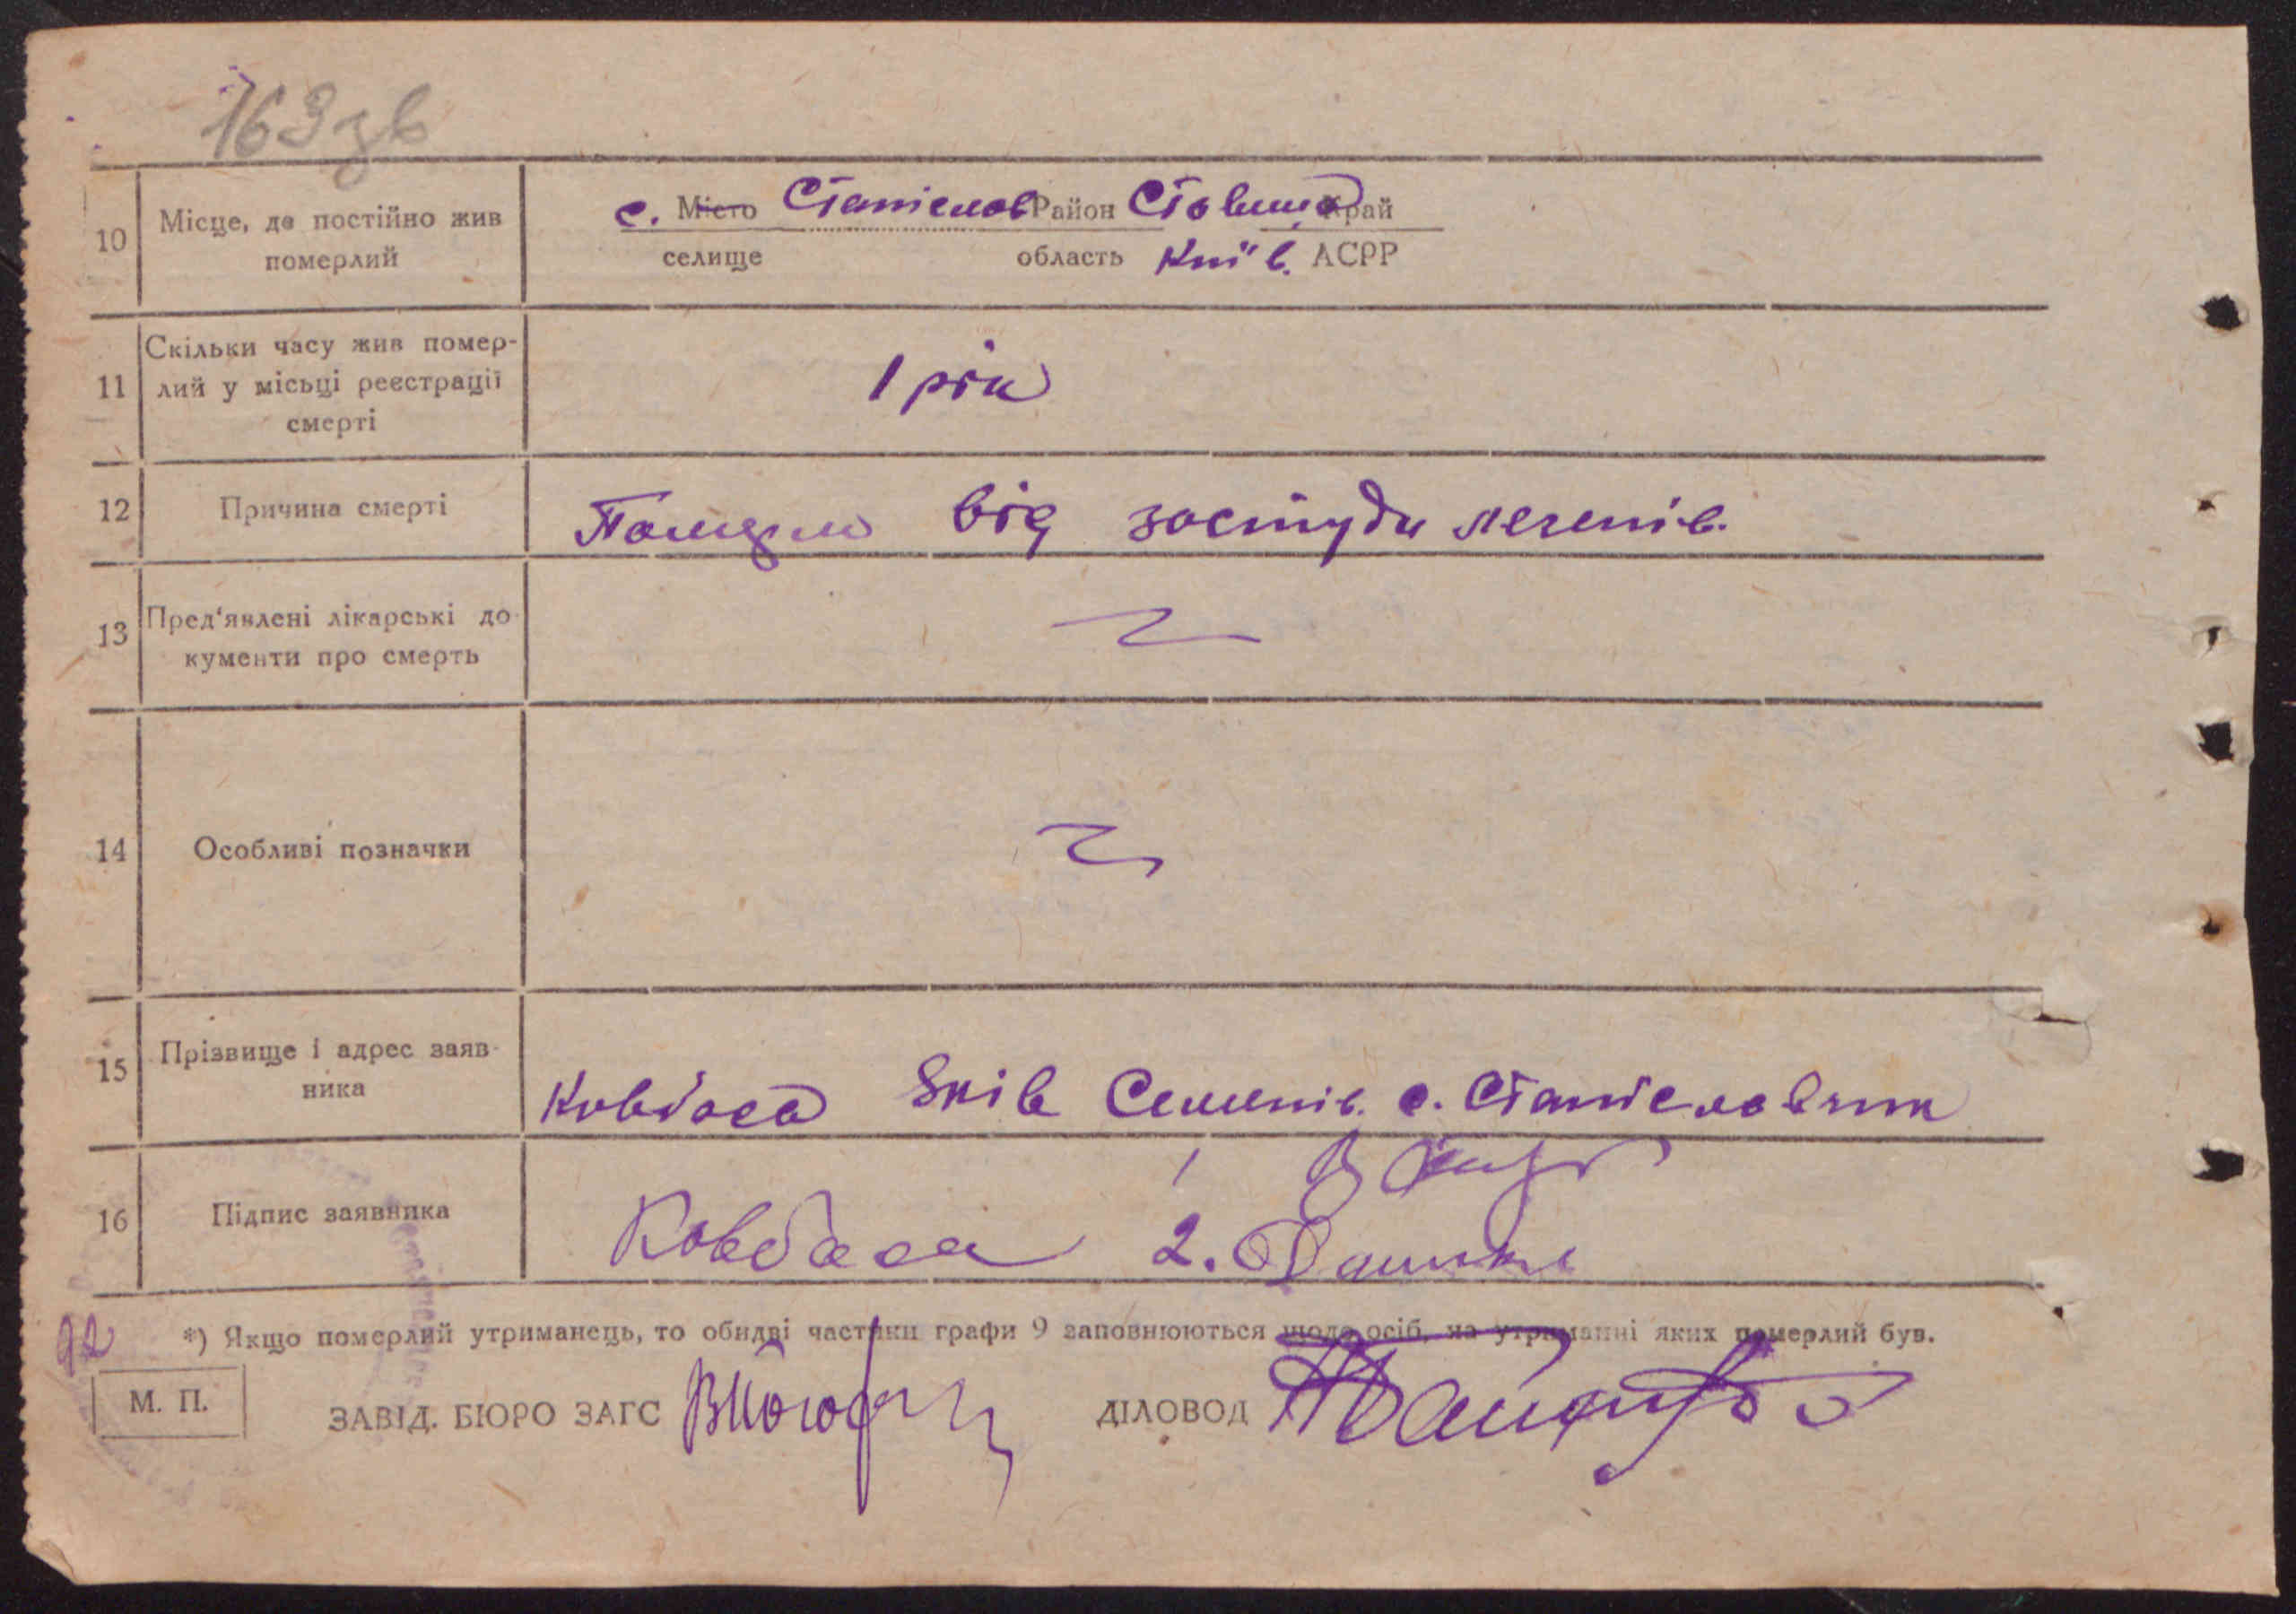 163 зв
10 Місце, де постійно жив померлий
с. Місто Станіслов Район Ставищ Край
селище область Київ. АСРР
11 Скільки часу жив помер-
лий у місьці реєстрації
смерті
1 рік
12 Причина смерті
від застуди легенів.
13 Пред'явлені лікарські до-
кументи про смерть
14 Особливі позначки
15 Прізвище і адрес заяв-
ника
Ковбаса Яків Семенів. с. Станіслов
16 Підпис заявника
1
Ковбаса 2.
92
*) Якщо померлий утриманець, то обидві частини графи 9 заповнюються щодо осіб, на утриманні яких померлий був.
М. П.
ЗАВІД. БЮРО ЗАГС ДІЛОВОД